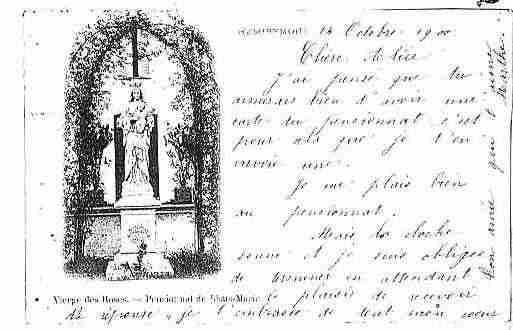 14 Octobre 1900
Chère Alice
J'ai pensé que tu
aimerais bien d'avoir une
carte du pensionnat c'est
pour cela que je t'en
envoie une.
Je me plais bien
au pensionnat.
Mais la cloche
sonne et je suis obligée
de terminer en attendant
le plaisir de recevoir
ta réponse je t'embrasse de tout mon coeur
Ton amie qui t'aime
Marthe
Vierge des Roses. — Pensionnat de Marie